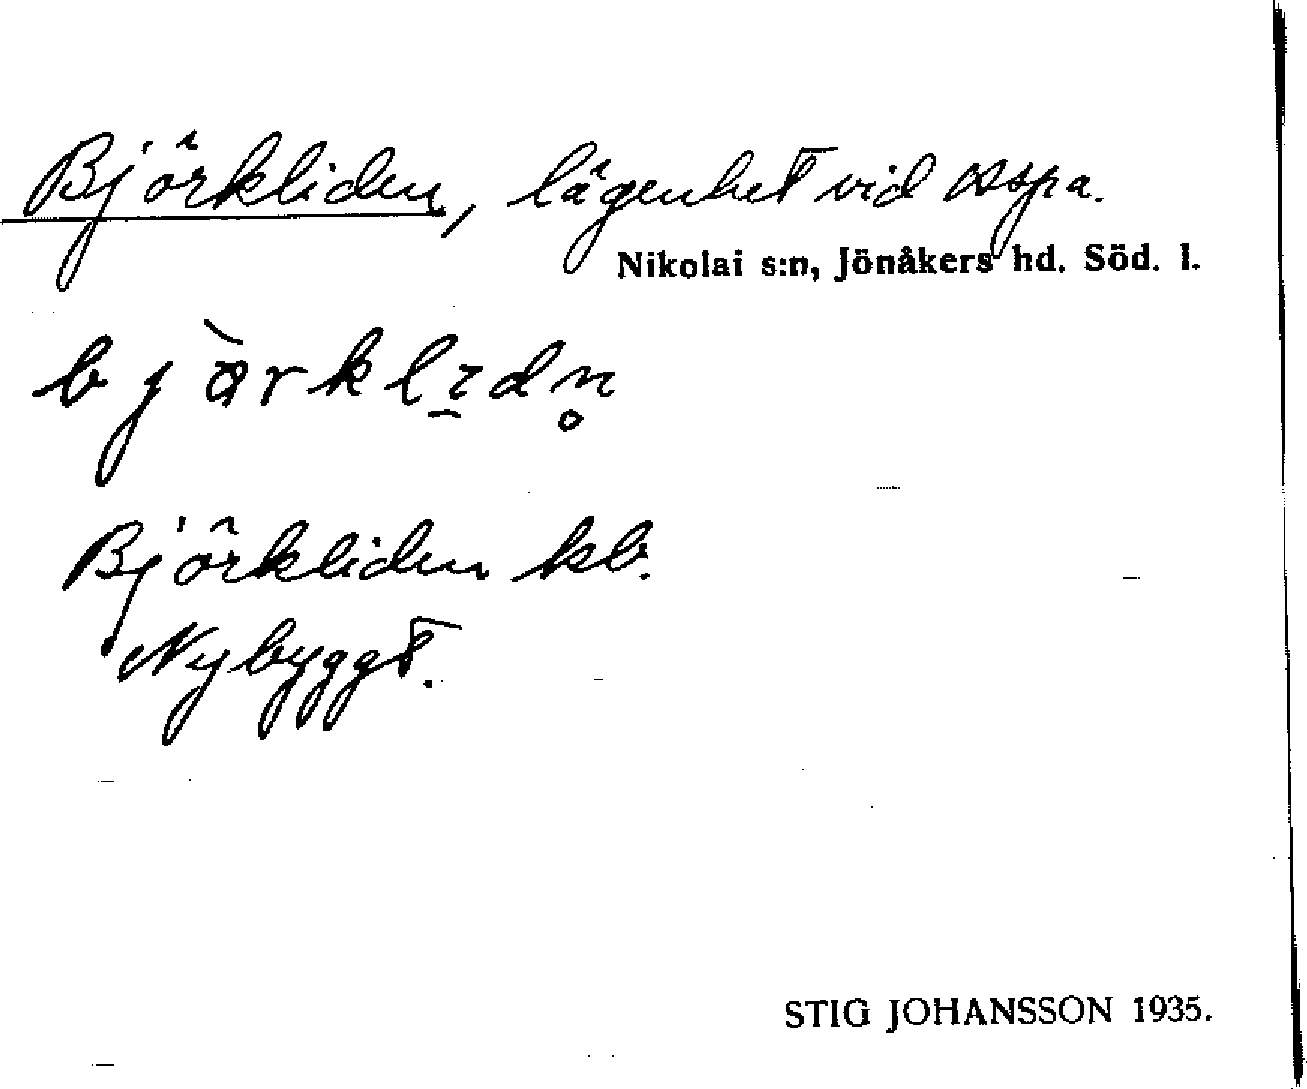 Björkliden, lägenhet vid Aspa.
Nikolai s:n, Jönåkers hd. Söd. l.
Björkliden kb.
Nybyggt.
STIG JOHANSSON 1935.